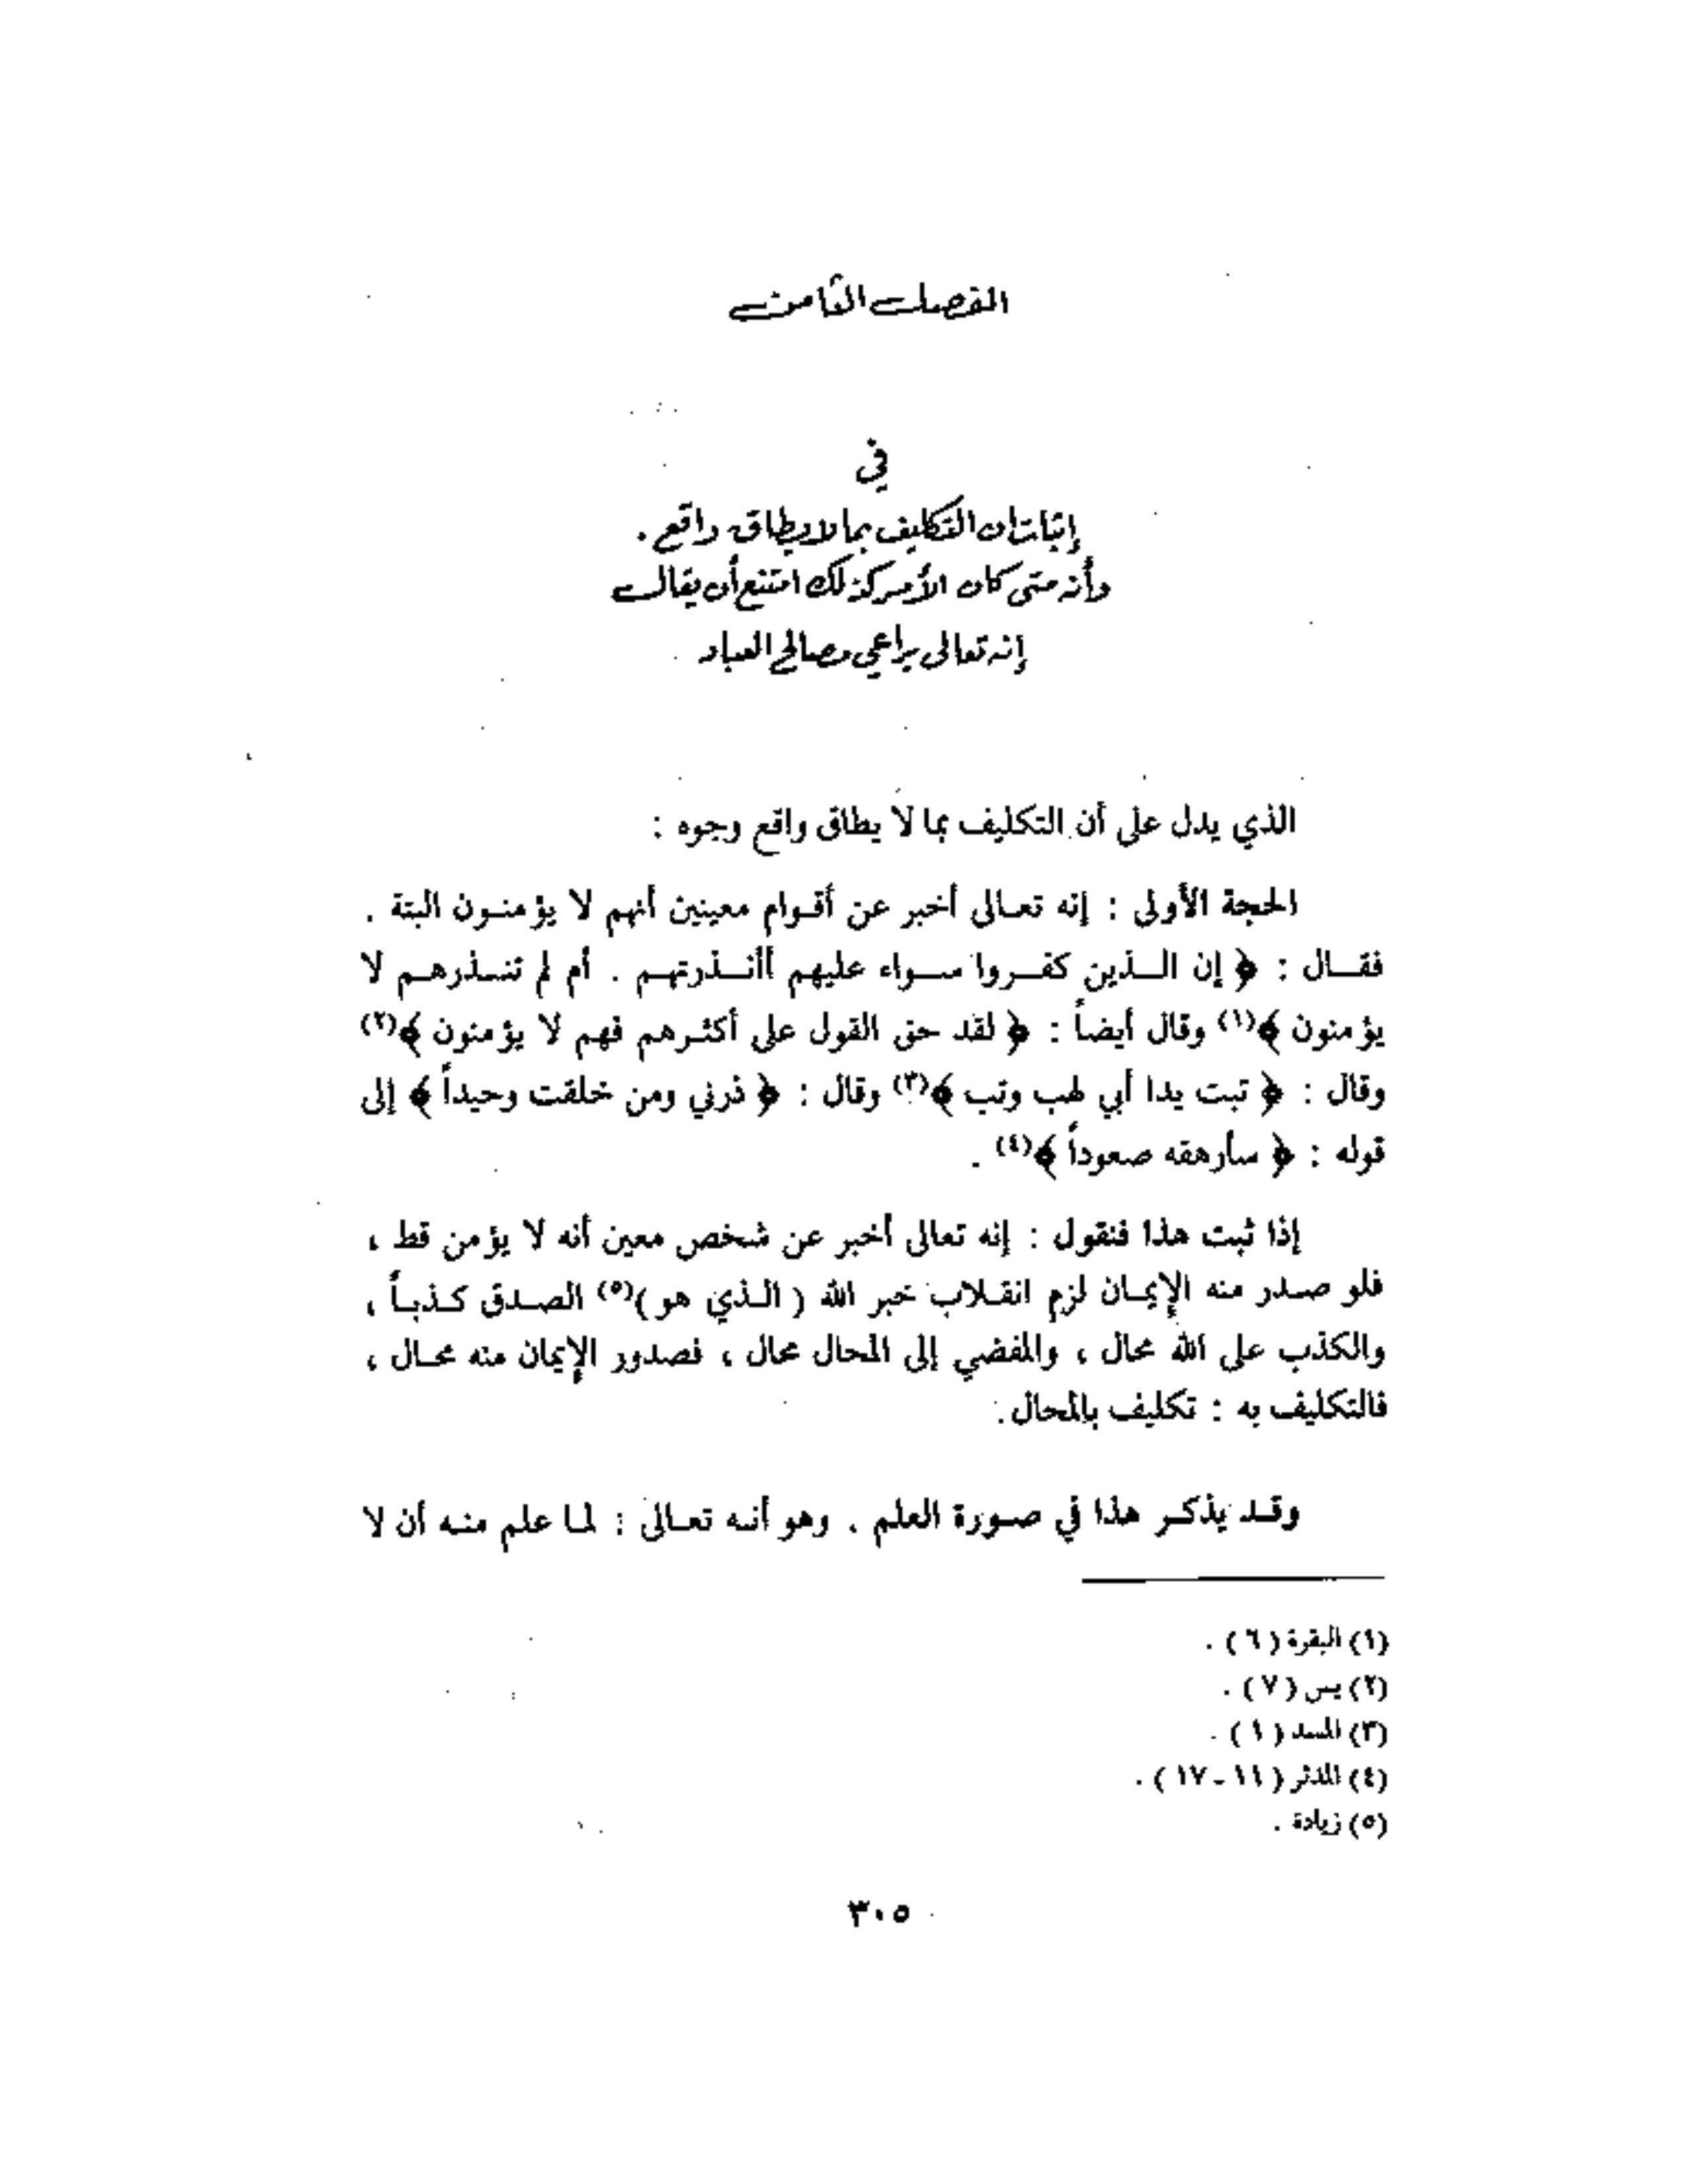 الفصل الثامن
في
إثبات أن التكليف بما لا يطاق واقع .
وأنه متى كان الأمر كذلك امتنع أن يقال
إنه تعالى يراعي مصالح العباد
الذي يدل على أن التكليف بما لا يطاق واقع وجوه :
الحجة الأولى : إنه تعـالى أخبر عن أقـوام معينين أنهم لا يؤمنـون البتة .
فقـــال : ﴿ إن الـــذين كفـــروا ســـواء عليهم أأنـــذرتهـــم . أم لم تنـــذرهـــم لا
يؤمنون ﴾(١) وقال أيضاً : ﴿ لقد حق القول على أكثـرهم فهم لا يؤمنون ﴾(٢)
وقال : ﴿ تبت يدا أبي لهب وتب ﴾(٣) وقال : ﴿ ذرني ومن خلقت وحيداً ﴾ إلى
قوله : ﴿ سأرهقه صعوداً ﴾(٤) .
إذا ثبت هذا فنقول : إنه تعالى أخبر عن شخص معين أنه لا يؤمن قط ،
فلو صـدر منه الإيمـان لزم انقـلاب خبر الله ( الـذي هو )(٥) الصـدق كـذبـاً ،
والكذب على الله محال ، والمفضي إلى المحال محال ، فصدور الإيمان منه محـال ،
فالتكليف به : تكليف بالمحال .
وقـد يذكـر هذا في صـورة العلم . وهو أنـه تعـالى : لمـا علم منـه أن لا
(١) البقرة ( ٦ ) .
(٢) يس ( ٧ ) .
(٣) المسد ( ١ ) .
(٤) المدثر ( ١١ - ١٧ ) .
(٥) زيادة .
٣٠٥